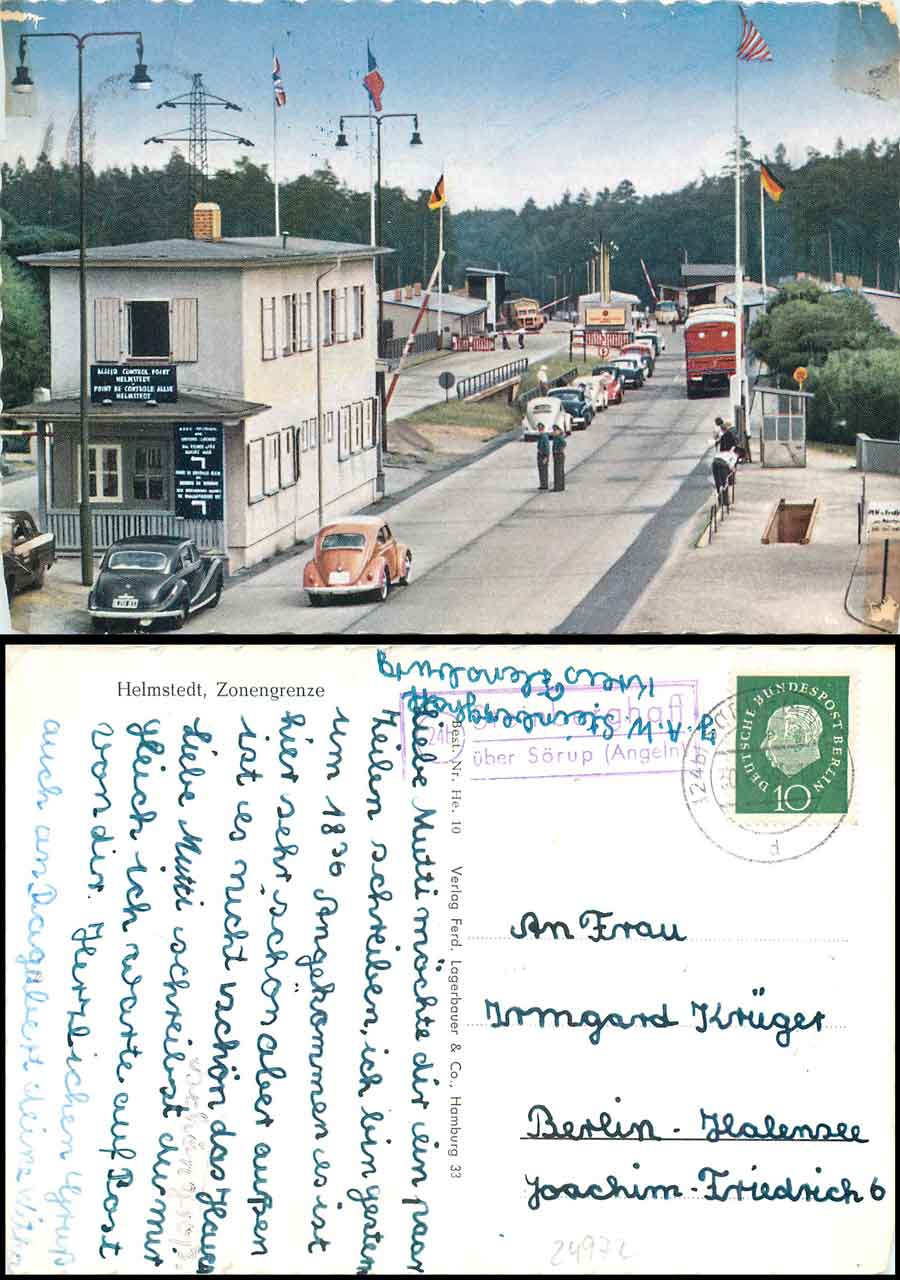 ALLIED CONTROL POINT
HELMSTEDT
POINT DE CONTROLE ALLIE
HELMSTEDT
Helmstedt, Zonengrenze
Best. Nr. He. 10
Verlag Ferd. Lagerbauer & Co., Hamburg 33
Liebe Mutti möchte dir ein paar
Zeilen schreiben, ich bin gestern
um 1830 Angekommen es ist
hier sehr schön aber außen
ist es nicht schön das Haus
Liebe Mutti schreibst du mir
gleich ich warte auf Post
von dir. Herzlichen Gruß
auch an Dagobert deine
Kreis Flensburg
über Sörup (Angeln)
(24b)
DEUTSCHE BUNDESPOST BERLIN
10
d
An Frau
Irmgard Krüger
Berlin - Halensee
Joachim-Friedrich 6
24972